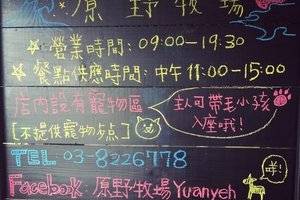 原野牧場
☆營業時間：09:00-19:30
☆餐點供應時間：中午11:00-15:00
店內設有寵物區
[不提供寵物步点]
主人可帶毛小孩
入座哦!
TEL 03-8226778
Facebook：原野牧場Yuanyeh
咩!